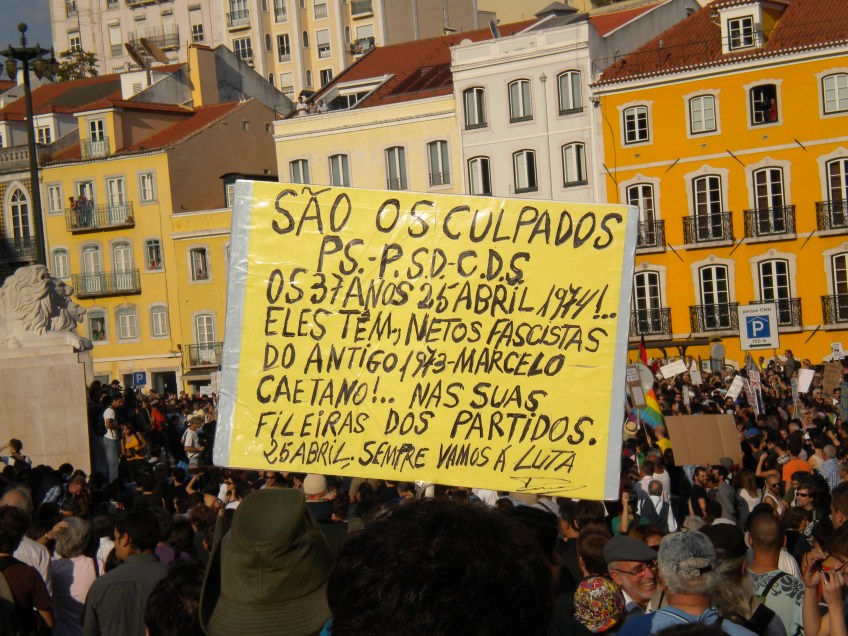 SÃO OS CULPADOS
PS.-P.S.D-C.D.S
OS 37 ANOS 25 ABRIL 1974!..
ELES TÊM, NETOS FASCISTAS
DO ANTIGO 1973-MARCELO
CAETANO!.. NAS SUAS
FILEIRAS DOS PARTIDOS.
25 ABRIL, SEMPRE VAMOS Á LUTA
P
P